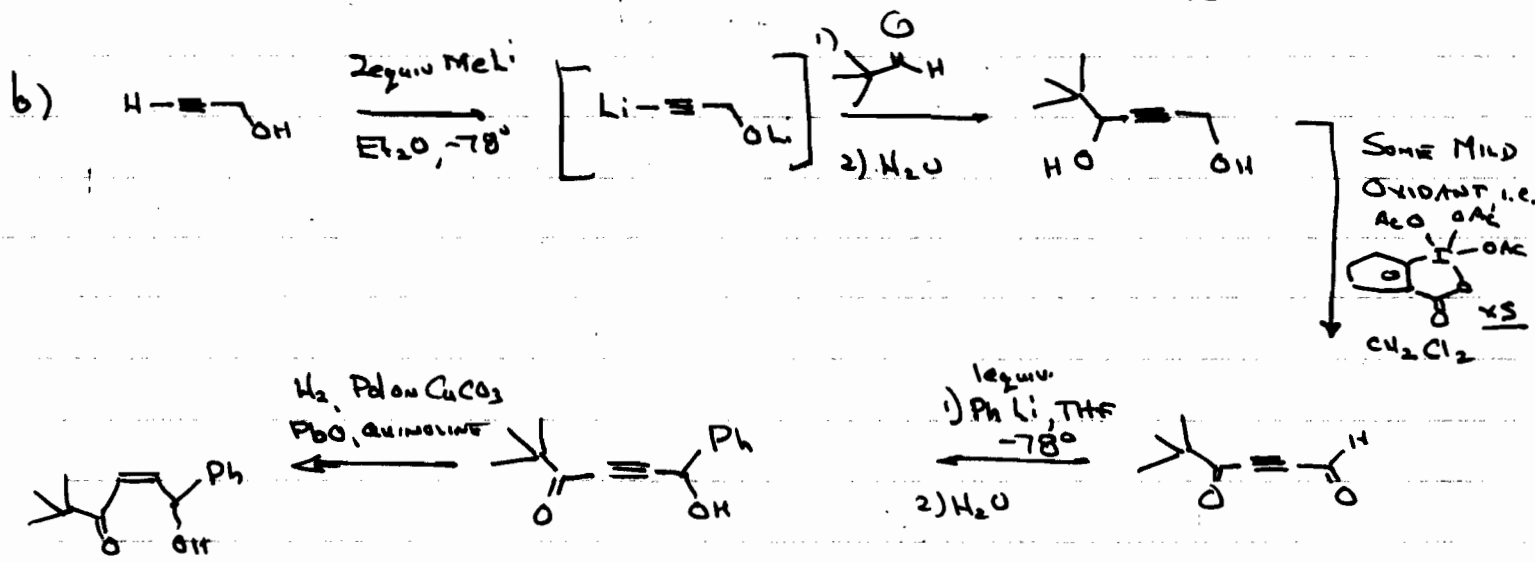 b) H OH
2equiv MeLi
Et2O, -78°
Li OLi
1) G H
2) H2O
HO OH
SOME MILD
OXIDANT, i.e.
AcO OAc
I OAc
O
O xs
CH2Cl2
H
O O
1equiv.
1) PhLi, THF
-78°
2) H2O
Ph
O OH
H2, Pd on CuCO3
PbO, QUINOLINE
Ph
O OH